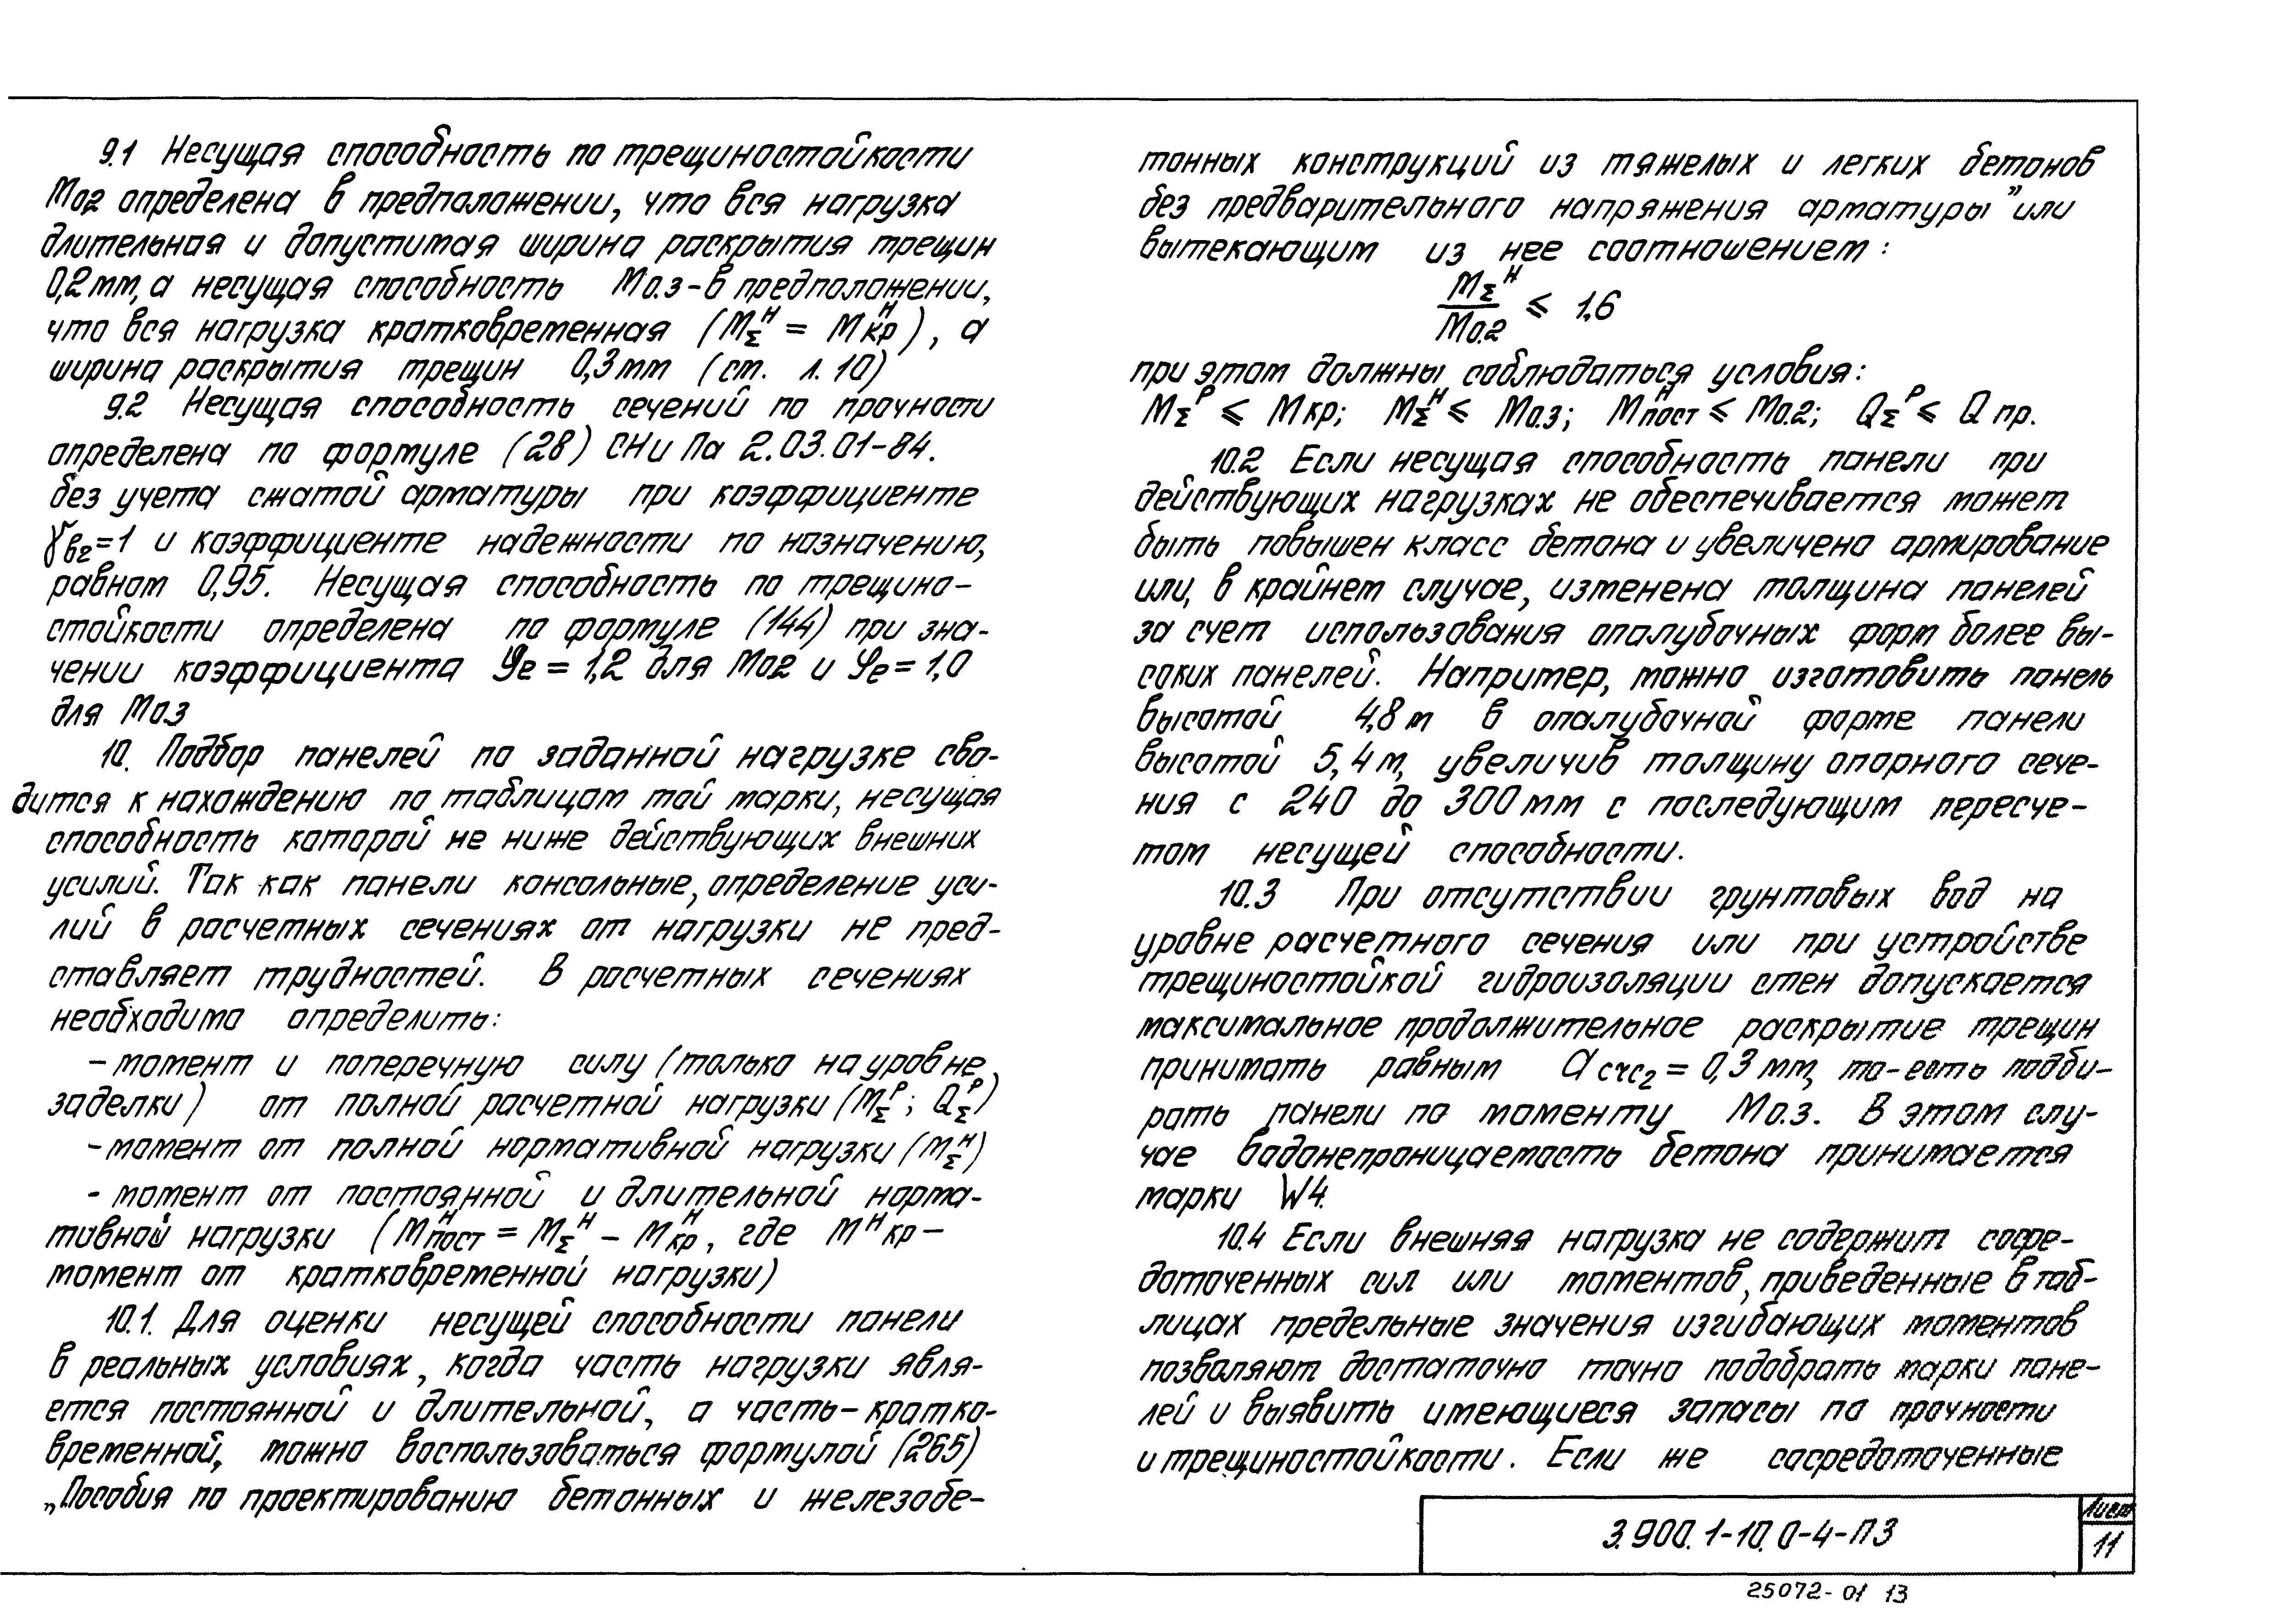 9.1 Несущая способность по трещиностойкости
M0.2 определена в предположении, что вся нагрузка
длительная и допустимая ширина раскрытия трещин
0,2 мм, а несущая способность M0.3 - в предположении,
что вся нагрузка кратковременная (MΣ^н = Mкр^н), а
ширина раскрытия трещин 0,3 мм (ст. л. 10)
9.2 Несущая способность сечений по прочности
определена по формуле (28) СНиПа 2.03.01-84.
без учета сжатой арматуры при коэффициенте
γв2=1 и коэффициенте надежности по назначению,
равном 0,95. Несущая способность по трещино-
стойкости определена по формуле (144) при зна-
чении коэффициента φe = 1,2 для M0.2 и φe = 1,0
для M0.3
10. Подбор панелей по заданной нагрузке сво-
дится к нахождению по таблицам той марки, несущая
способность которой не ниже действующих внешних
усилий. Так как панели консольные, определение уси-
лий в расчетных сечениях от нагрузки не пред-
ставляет трудностей. В расчетных сечениях
необходимо определить:
- момент и поперечную силу (только на уровне
заделки) от полной расчетной нагрузки (MΣ^р; QΣ^р)
- момент от полной нормативной нагрузки (MΣ^н)
- момент от постоянной и длительной норма-
тивной нагрузки (Mпост^н = MΣ^н - Mкр^н, где M^н кр -
момент от кратковременной нагрузки)
10.1. Для оценки несущей способности панели
в реальных условиях, когда часть нагрузки явля-
ется постоянной и длительной, а часть - кратко-
временной, можно воспользоваться формулой (265)
„Пособия по проектированию бетонных и железобе-
тонных конструкций из тяжелых и легких бетонов
без предварительного напряжения арматуры" или
вытекающим из нее соотношением:
MΣ^н / M0.2 ⩽ 1,6
при этом должны соблюдаться условия:
MΣ^р ⩽ Mкр; MΣ^н ⩽ M0.3; Mпост^н ⩽ M0.2; QΣ^р ⩽ Q пр.
10.2 Если несущая способность панели при
действующих нагрузках не обеспечивается может
быть повышен класс бетона и увеличено армирование
или, в крайнем случае, изменена толщина панелей
за счет использования опалубочных форм более вы-
соких панелей. Например, можно изготовить панель
высотой 4,8 м в опалубочной форме панели
высотой 5,4 м, увеличив толщину опорного сече-
ния с 240 до 300 мм с последующим пересче-
том несущей способности.
10.3 При отсутствии грунтовых вод на
уровне расчетного сечения или при устройстве
трещиностойкой гидроизоляции стен допускается
максимальное продолжительное раскрытие трещин
принимать равным acrc2 = 0,3 мм, то-есть подби-
рать панели по моменту M0.3. В этом слу-
чае водонепроницаемость бетона принимается
марки W4.
10.4 Если внешняя нагрузка не содержит сосре-
доточенных сил или моментов, приведенные в таб-
лицах предельные значения изгибающих моментов
позволяют достаточно точно подобрать марки пане-
лей и выявить имеющиеся запасы по прочности
и трещиностойкости. Если же сосредоточенные
3.900.1-10.0-4-ПЗ
Лист
11
25072-01 13